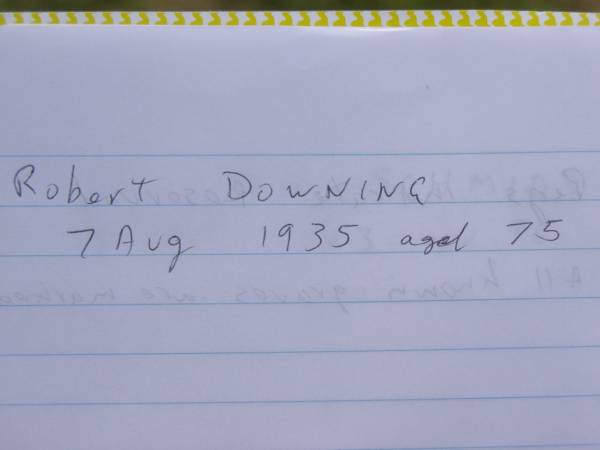 Robert DOWNING
7 Aug 1935 aged 75